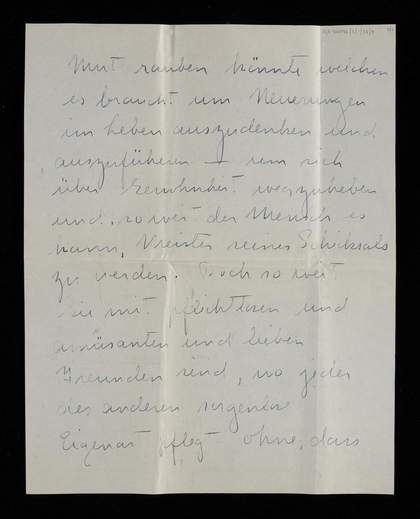 Mut rauben könnte welchen
es braucht um Neuerungen
im Leben auszudenken und
auszuführen — um sich
über Gewohnheit wegzuheben
und, soweit der Mensch es
kann, Meister seines Schicksals
zu werden. Doch so weit
Sie mit pflichtlosen und
amüsanten und lieben
Freunden sind, wo jeder
des anderen sorgenlose
Eigenart pflegt ohne, dass